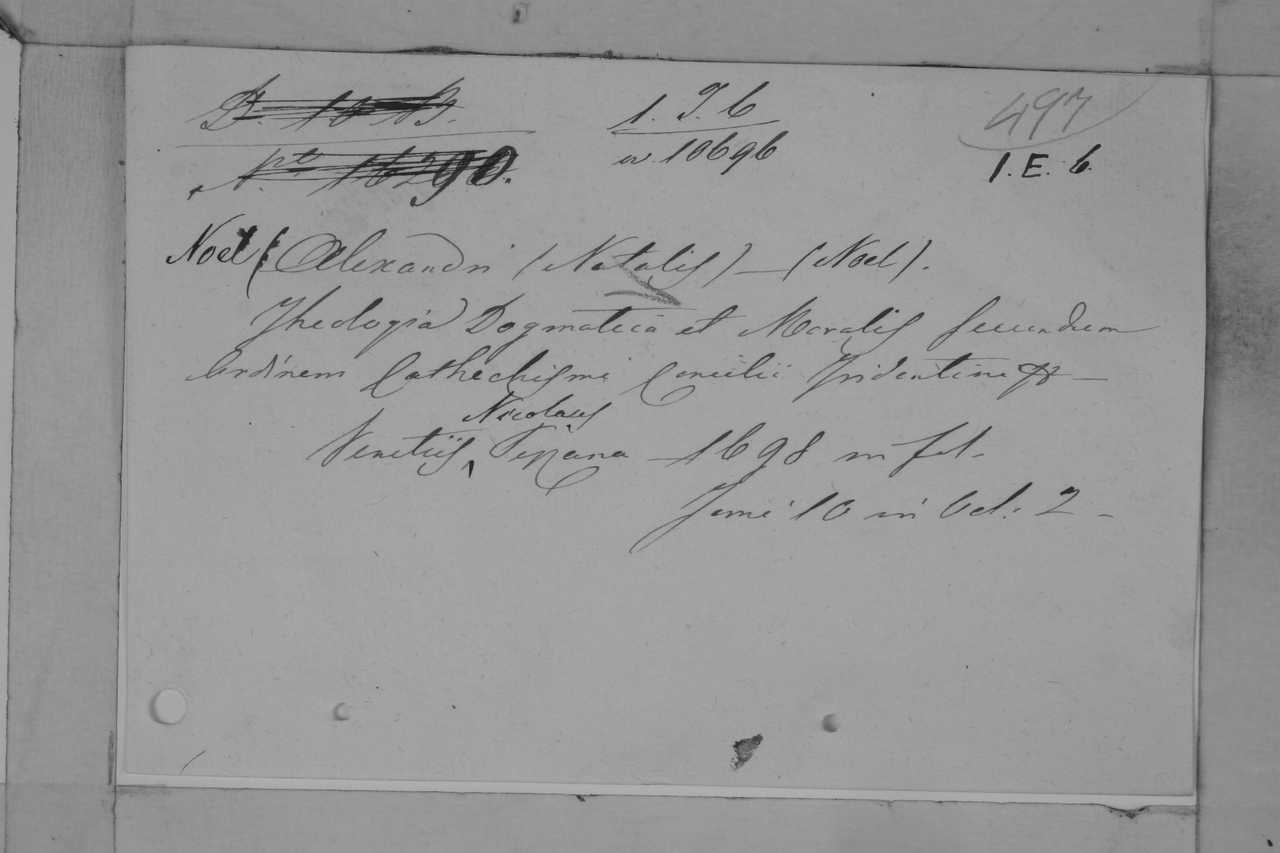 1. T. 6
497
10696
1. E. 6.
Noel (Alexandri (Natalis) — (Noel).
Theologia Dogmatica et Moralis secundum
Ordinem Cathechismi Concilii Tridentini &
Nicolaus
Venetiis Pezana 1698 in fol.
Tomi 10 in Vol: 2 -